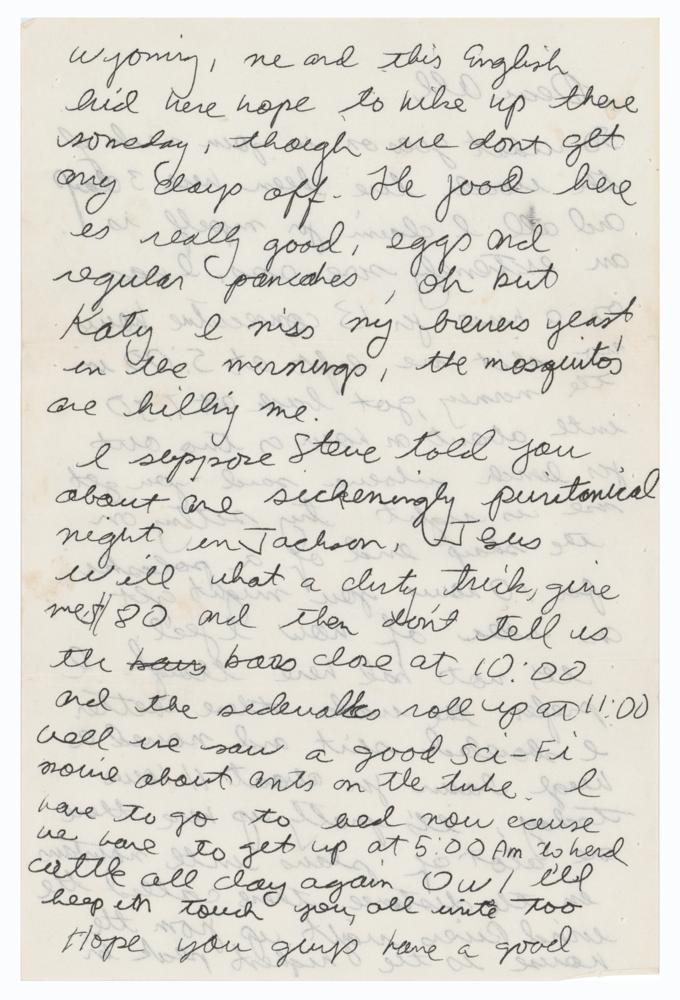 Wyoming, me and this English
kid here hope to hike up there
someday, though we dont get
any days off. The food here
is really good, eggs and
regular pancakes, oh but
Katy I miss my brewers yeast
in the mornings, the mosquitos
are killing me.
I suppose Steve told you
about are sickeningly puritanical
night in Jackson, Jesus
Will what a dirty trick, give
me $80 and then don't tell us
the bars bars close at 10:00
and the sidewalks roll up at 11:00
well we saw a good Sci-Fi
movie about ants on the tube. I
have to go to bed now cause
we have to get up at 5:00 Am to herd
cattle all day again Ow! I'll
keep in touch you, all write too
Hope you guys have a good